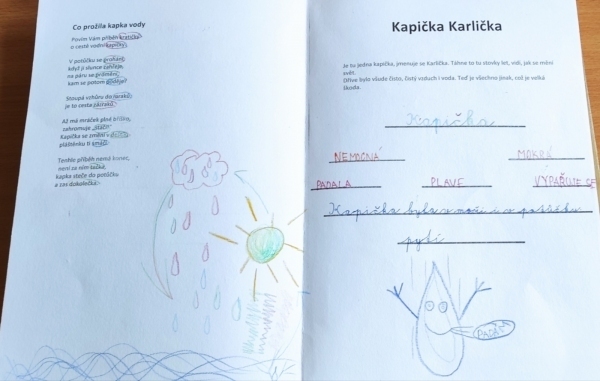 Co prožila kapka vody
Povím Vám příběh kratičký
o cestě vodní kapičky.
V potůčku se prohání,
když ji slunce zahřeje,
na páru se promění,
kam se potom poděje?
Stoupá vzhůru do mraků,
je to cesta zázraků.
Až má mráček plné bříško,
zahromuje „Stačí!“
Kapička se změní v deštík,
pláštěnku ti smáčí.
Tenhle příběh nemá konec,
není za ním tečka,
kapka steče do potůčku
a zas dokolečka.
Kapička Karlička
Je tu jedna kapička, jmenuje se Karlička. Táhne to tu stovky let, vidí, jak se mění
svět.
Dříve bylo všude čisto, čistý vzduch i voda. Teď je všechno jinak, což je velká
škoda.
Kapička
NEMOCNÁ MOKRÁ
PADALA PLAVE VYPAŘUJE SE
Kapička byla v moři i v potůčku
PADÁM